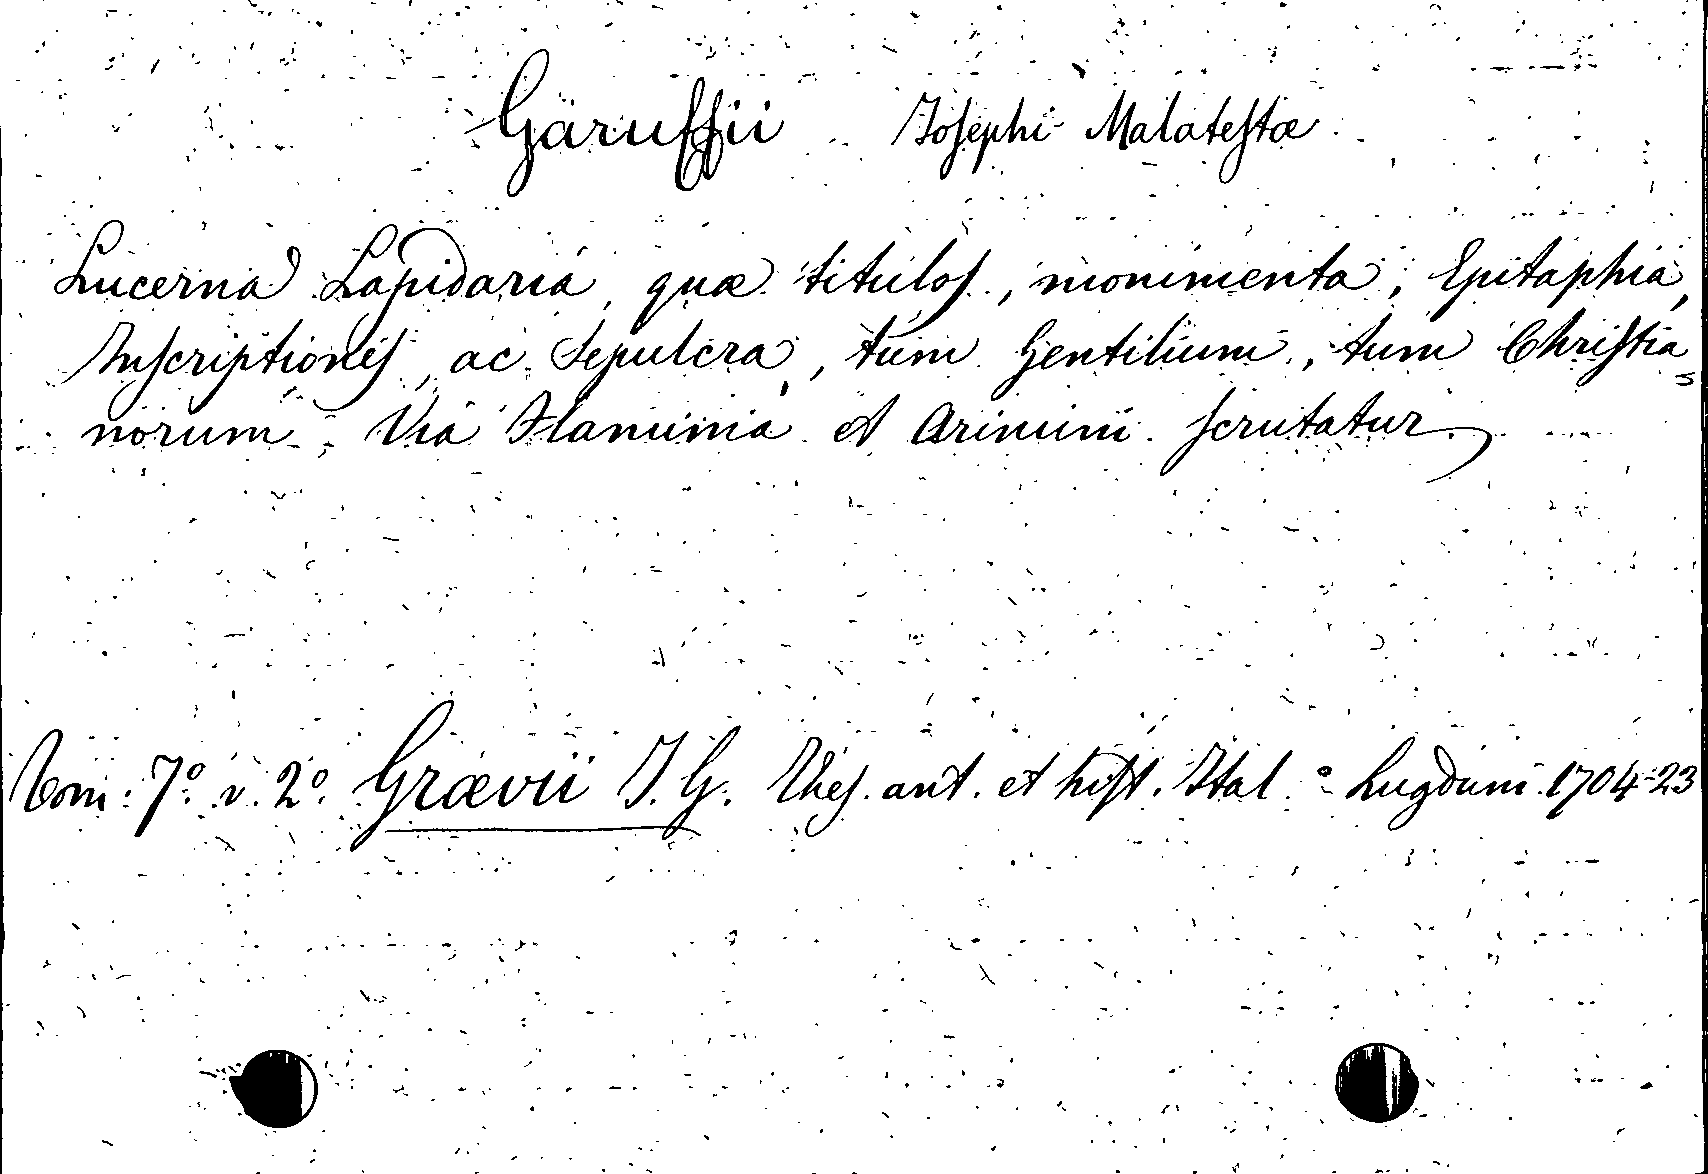 Garuffii Joſephi Malateſtæ
Lucerna Lapidaria, quæ tituloſ, monimenta, Epitaphia,
Inſcriptioneſ, ac Sepulcra, tum Gentilium, tum Chriſtia=
norum, Via Flaminia et Arimini ſcrutatur.
Tom: 7º. v. 2º. Grævii J. G. Theſ. ant. et hiſt. Ital. Lugduni 1704-23